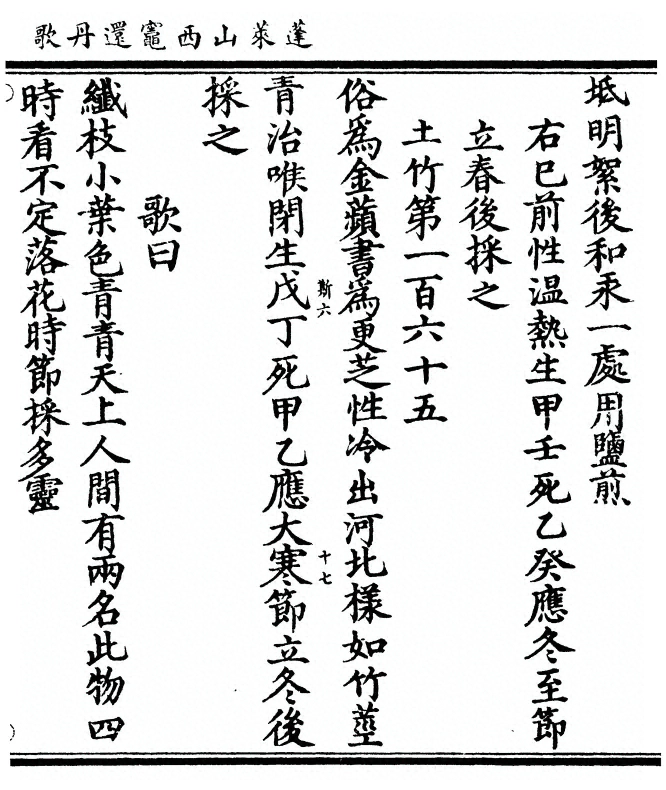 蓬萊山西竈還丹歌
坻明絮後和汞一處用鹽煎
右巳前性温熱生甲壬死乙癸應冬至節
立春後採之
土竹第一百六十五
俗爲金蘋書爲更芝性冷出河北樣如竹莖
青治喉閉生戊丁死甲乙應大寒節立冬後
斯六
十七
採之
歌曰
纖枝小葉色青青天上人間有兩名此物四
時看不定落花時節採多靈